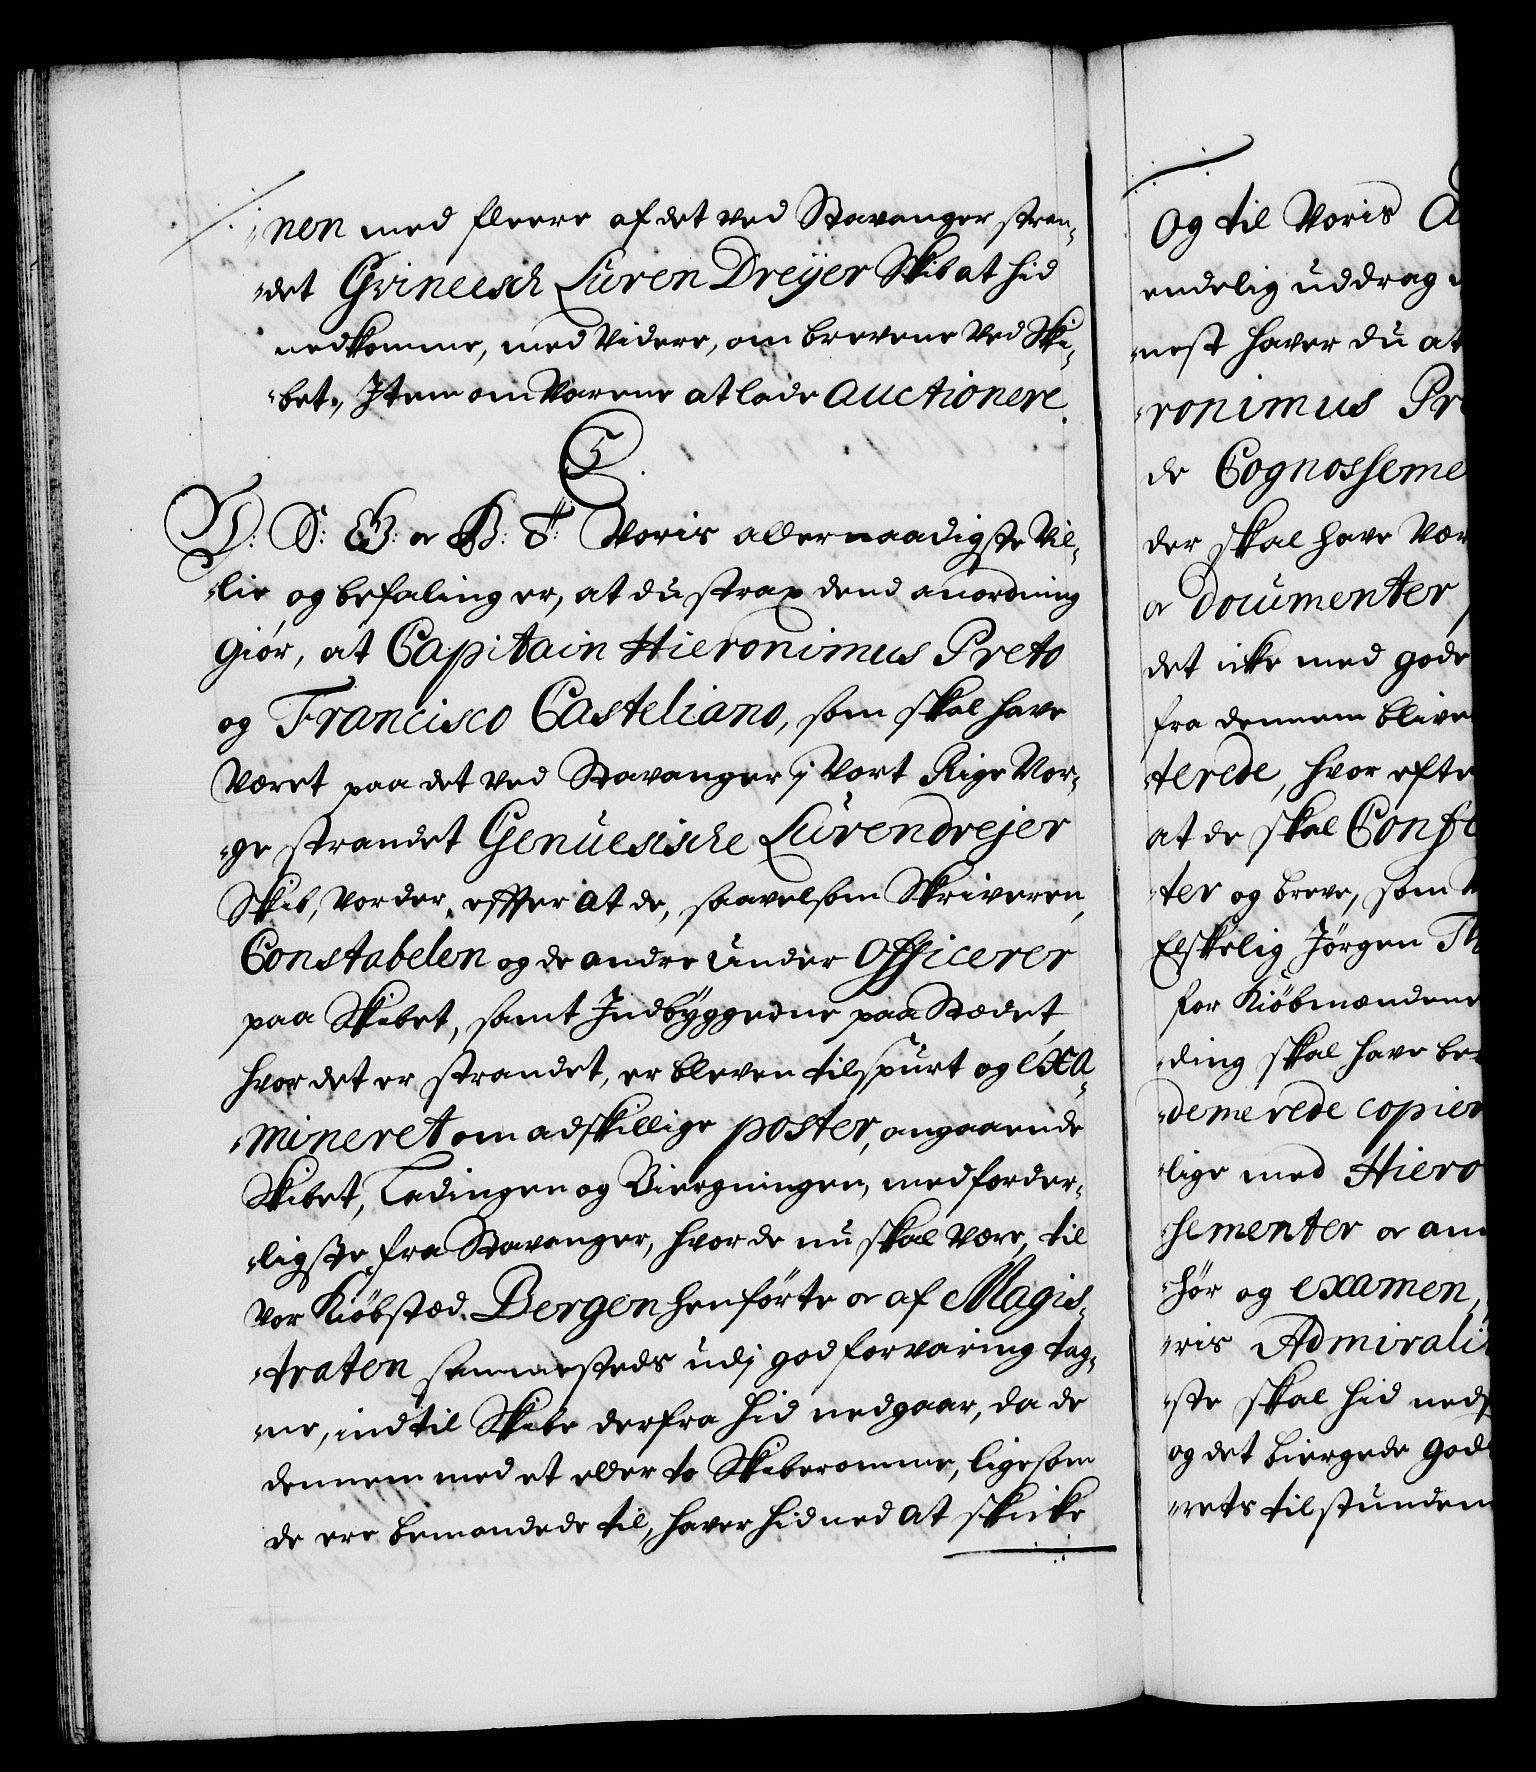 nen med fleere af det ved Stavanger stran-
det Grineesch Luren Dreÿer Skib at hid
nedkomme, med Videre, om brevene Ved Ski-
bet, Item om Varene at lade Auctionere.
C
V: S: G: or B: T: Voris allernaadigste Vil-
lie og befaling er, at du strax dend anordning
giør, at Capitain Hieronimus Preto
og Francisco Casteliano, som skal have
Været paa det ved Stavanger i Vort Rige Nor-
ge strandet Genuesische Lurendrejer
Skib, vorder, effter at de, saavelsom Skriveren,
Constabelen og de andre under Officerer
paa Skibet, samt Indbÿggerne paa Stædet,
hvor det er strandet, er bleven tilspurt og exa-
mineret om adskillige poster, angaaende
Skibet, Ladingen og Biergningen, med forder-
ligste fra Stavanger, hvor de nu skal være, til
vor Kiøbstæd Bergen henførte or af Magis-
traten sammesteds udj god forvaring tag-
ne, indtil Skibe derfra hid nedgaar, da de
dennem med et eller to Skiberomme, ligesom
de ere bemandede til, haver hid ned at skicke
Og til Voris A
endelig uddrag
nest haver du at
ronimus Pr
de Cognosseme
der skal have Vær
or documenter
det icke med gode
fra dennem blive
terede, hvor efte
at de skal Confe
ter og breve, som
Elskelig Jørgen Th
for Kiøbmændene
ding skal have be
demerede copier
lige med Hiero
sementer or an
hør og examen,
ris Admirali
ste skal hid neds
og det biergede God
rets tilstunden